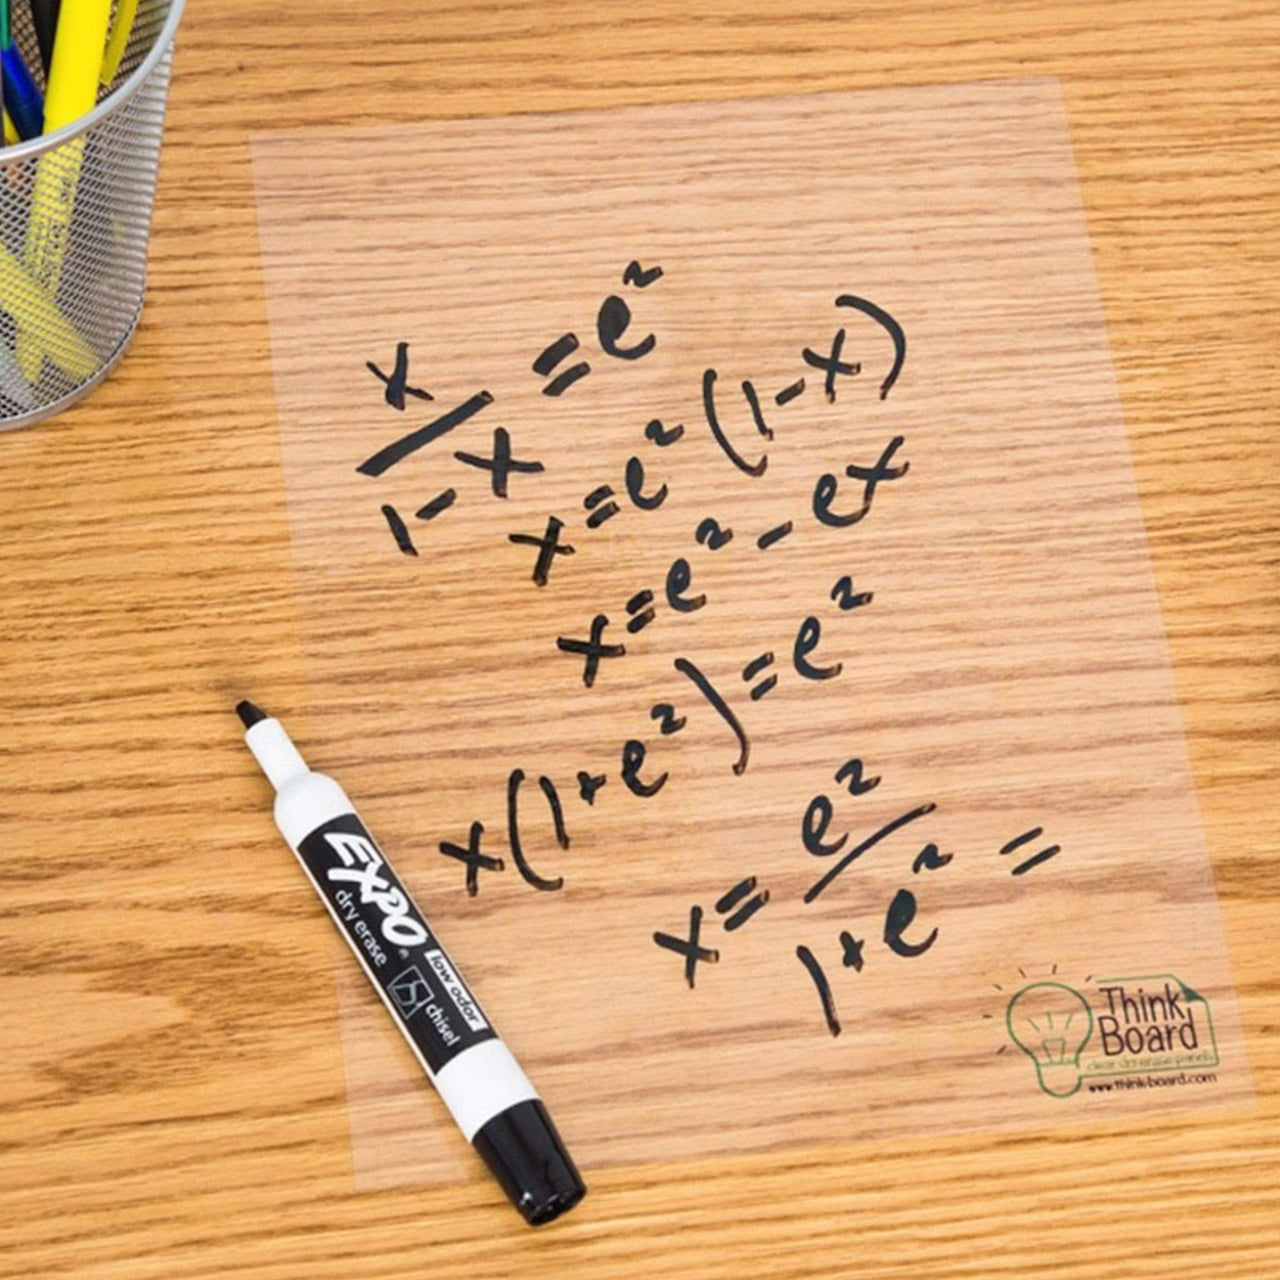 x/1-x = e²
x = e² (1-x)
x = e² - ex
x(1+e²) = e²
x = e²/1+e² =
EXPO®
dry erase
low odor
chisel
Think
Board
clear dry erase panels
www.think-board.com